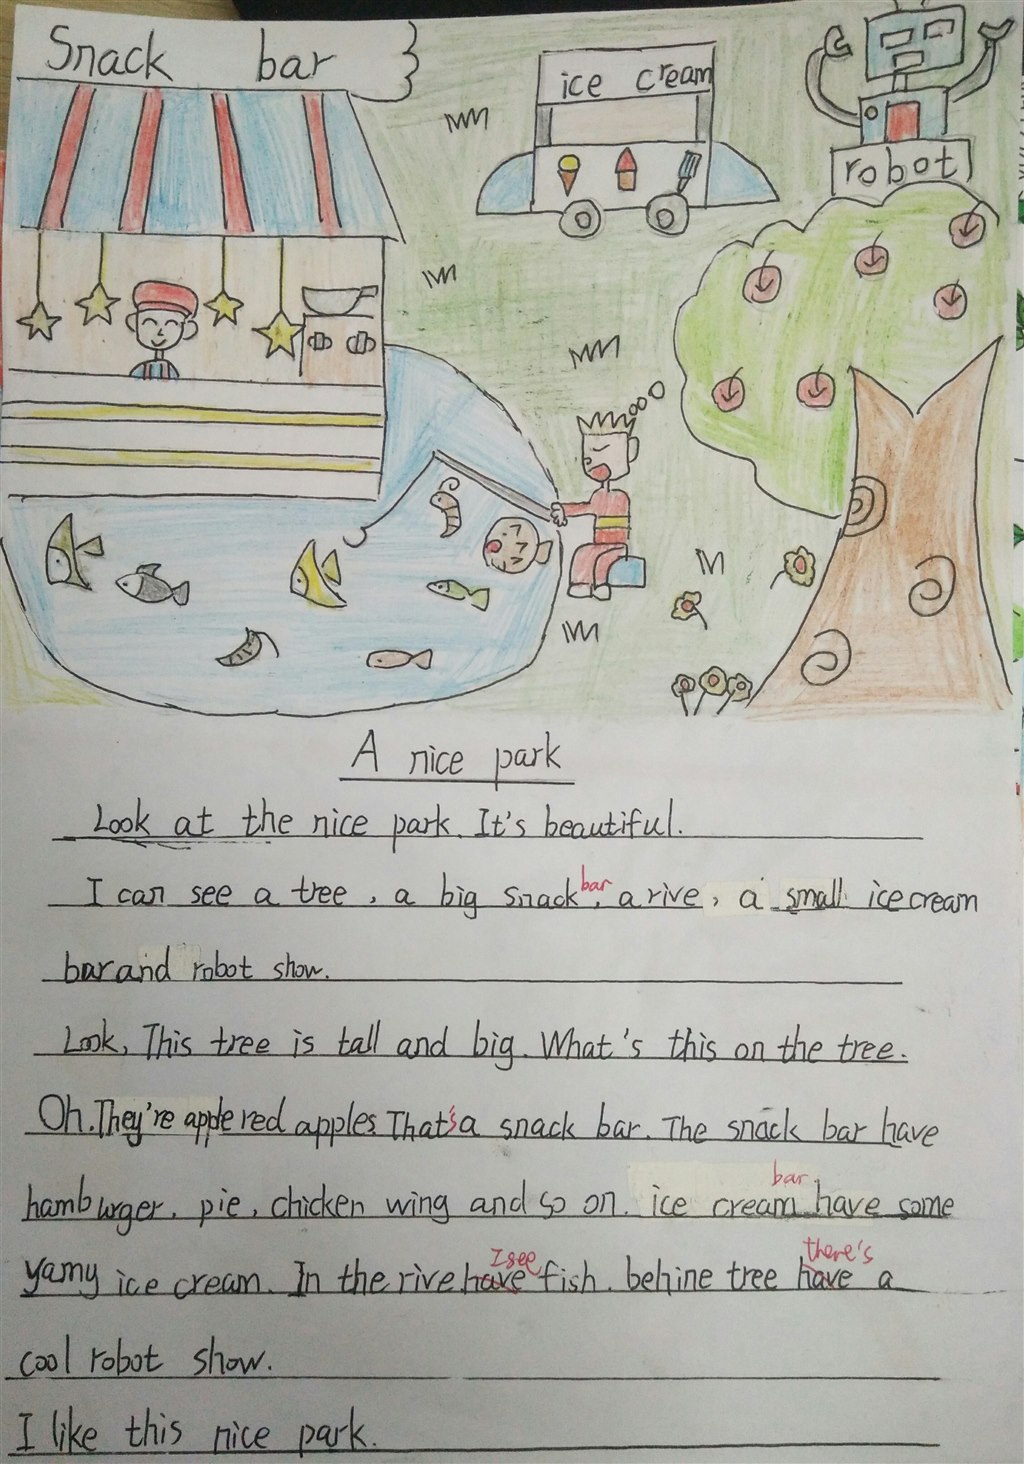 Snack bar
ice cream
robot
A nice park
Look at the nice park. It's beautiful.
I can see a tree, a big snack bar, a rive, a small ice cream
bar and robot show.
Look, This tree is tall and big. What's this on the tree.
Oh. They're apple red apples. That's a snack bar. The snack bar have
hamburger, pie, chicken wing and so on. ice cream bar have some
yamy ice cream. In the rive have I see fish. behine tree have there's a
cool robot show.
I like this nice park.